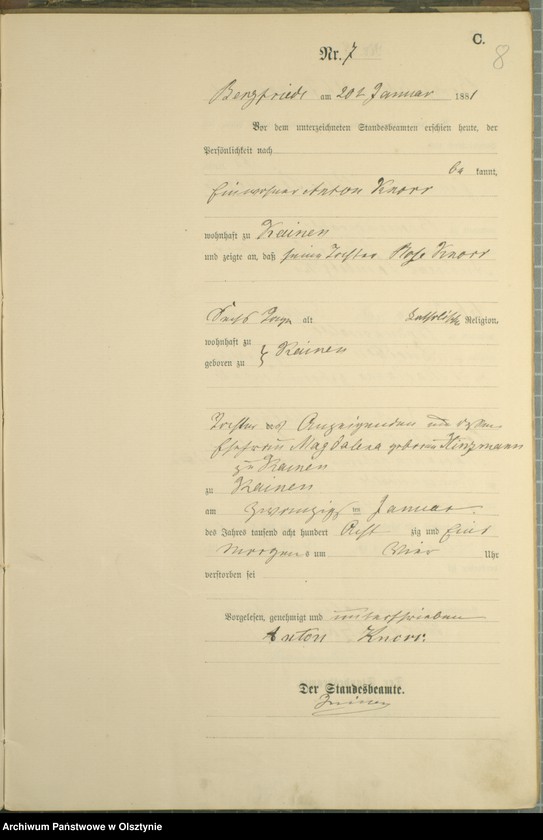 C.
8
Nr. 7
Bergfriede am 20t Januar 1881
Vor dem unterzeichneten Standesbeamten erschien heute, der
Persönlichkeit nach
be kannt,
Einwohner Anton Knorr
wohnhaft zu Kainen
und zeigte an, daß seine Tochter Rosa Knorr
Sechs Tage alt katholische Religion,
wohnhaft zu
geboren zu } Kainen
Tochter des Anzeigenden und dessen
Ehefrau Magdalena geborene Hinzmann
zu Kainen
zu Kainen
am Zwanzigsten Januar
des Jahres tausend acht hundert Acht zig und Eins
Morgens um Vier Uhr
verstorben sei
Vorgelesen, genehmigt und unterschrieben
Anton Knorr.
Der Standesbeamte.
Archiwum Państwowe w Olsztynie